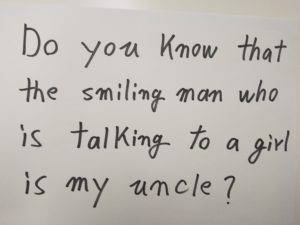 Do you know that
the smiling man who
is talking to a girl
is my uncle?